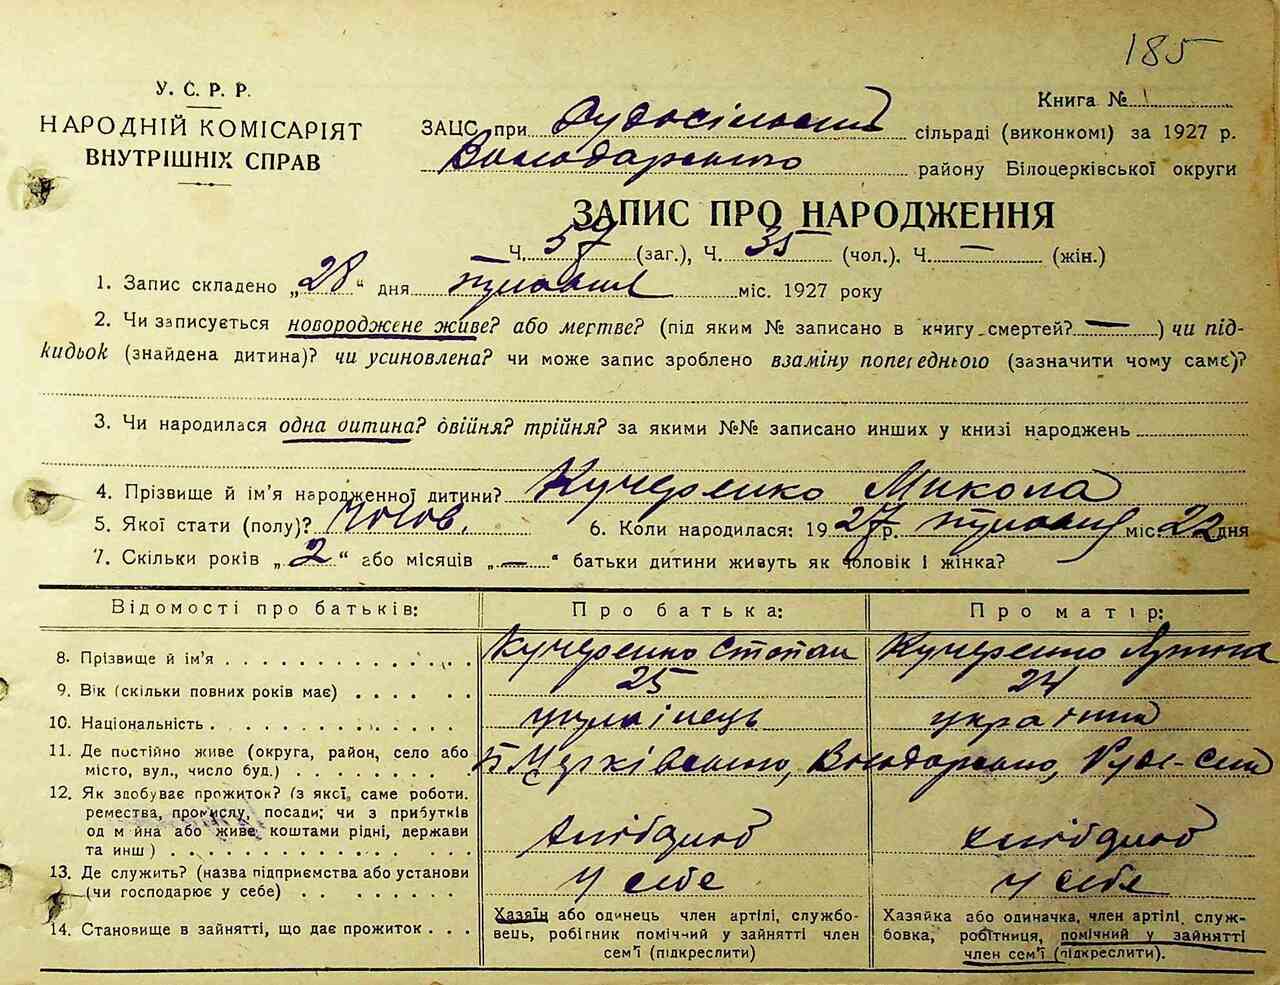 185
У. С. Р. Р.
НАРОДНІЙ КОМІСАРІЯТ
ВНУТРІШНІХ СПРАВ
Книга №
ЗАЦС при Рудосільській сільраді (виконкомі) за 1927 р.
Володарського району Білоцерківської округи
ЗАПИС ПРО НАРОДЖЕННЯ
Ч. 57 (заг.), Ч. 35 (чол.), Ч. — (жін.)
1. Запис складено „28“ дня міс. 1927 року
2. Чи записується новороджене живе? або мертве? (під яким № записано в книгу смертей? — ) чи під-
кидьок (знайдена дитина)? чи усиновлена? чи може запис зроблено взаміну попереднього (зазначити чому саме)?
3. Чи народилася одна дитина? двійня? трійня? за якими №№ записано инших у книзі народжень
4. Прізвище й ім'я народженної дитини? Кучеренко Микола
5. Якої стати (полу)? чолов. 6. Коли народилася: 1927 р. міс. 22 дня
7. Скільки років „2“ або місяців „—“ батьки дитини живуть як чоловік і жінка?
Відомості про батьків: Про батька: Про матір:
8. Прізвище й ім'я Кучеренко Степан Кучеренко
9. Вік (скільки повних років має) 25 24
10. Національність українець українка
11. Де постійно живе (округа, район, село або
місто, вул., число буд.) Володарського,
12. Як здобуває прожиток? (з якої, саме роботи.
ремества, промислу, посади; чи з прибутків
од майна або живе коштами рідні, держави
та инш) хлібороб хлібороб
13. Де служить? (назва підприємства або установи
(чи господарює у себе) у себе у себе
14. Становище в зайнятті, що дає прожиток
Хазяїн або одинець член артілі, службо-
вець, робігник помічний у зайнятті член
сем'ї (підкреслити)
Хазяйка або одиначка, член артілі, служ-
бовка, робітниця, помічний у зайнятті
член сем'ї (підкреслити).